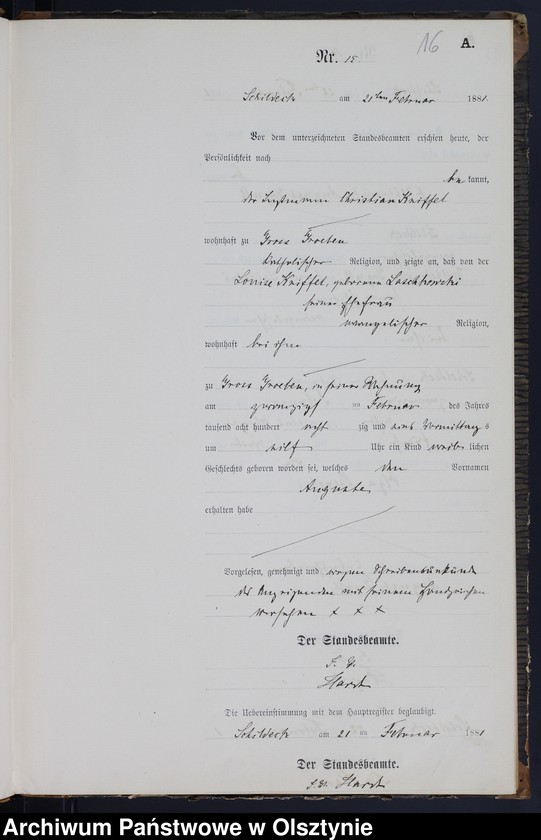 16
A.
Nr. 15
Schildeck am 21ten Februar 1881.
Vor dem unterzeichneten Standesbeamten erschien heute, der
Persönlichkeit nach
be kannt,
der Instmann Christian Kniffel
wohnhaft zu Gross Groeben
katholischer Religion, und zeigte an, daß von der
Louise Kniffel, geborene Laschkowski
seiner Ehefrau
evangelischer Religion,
wohnhaft bei ihm
zu Gross Groeben, in seiner Wohnung
am zwanzigsten Februar des Jahres
tausend acht hundert acht zig und eins Vormittags
um elf Uhr ein Kind weib lichen
Geschlechts geboren worden sei, welches den Vornamen
Auguste
erhalten habe
Vorgelesen, genehmigt und wegen Schreibensunkunde
des Anzeigenden mit seinem Handzeichen
versehen x x x
Der Standesbeamte.
Die Uebereinstimmung mit dem Hauptregister beglaubigt.
Schildeck am 21 ten Februar 1881
Der Standesbeamte.
Archiwum Państwowe w Olsztynie